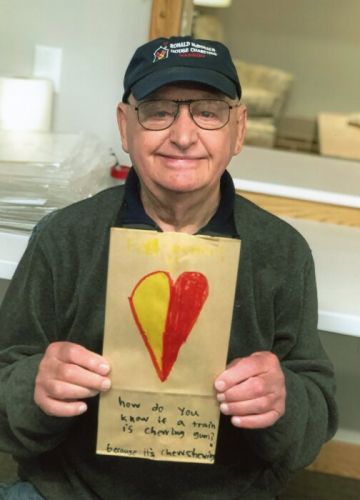 RONALD McDONALD
HOUSE CHARITIES
how do You
know if a train
is chewing gum?
because it's chewchewing